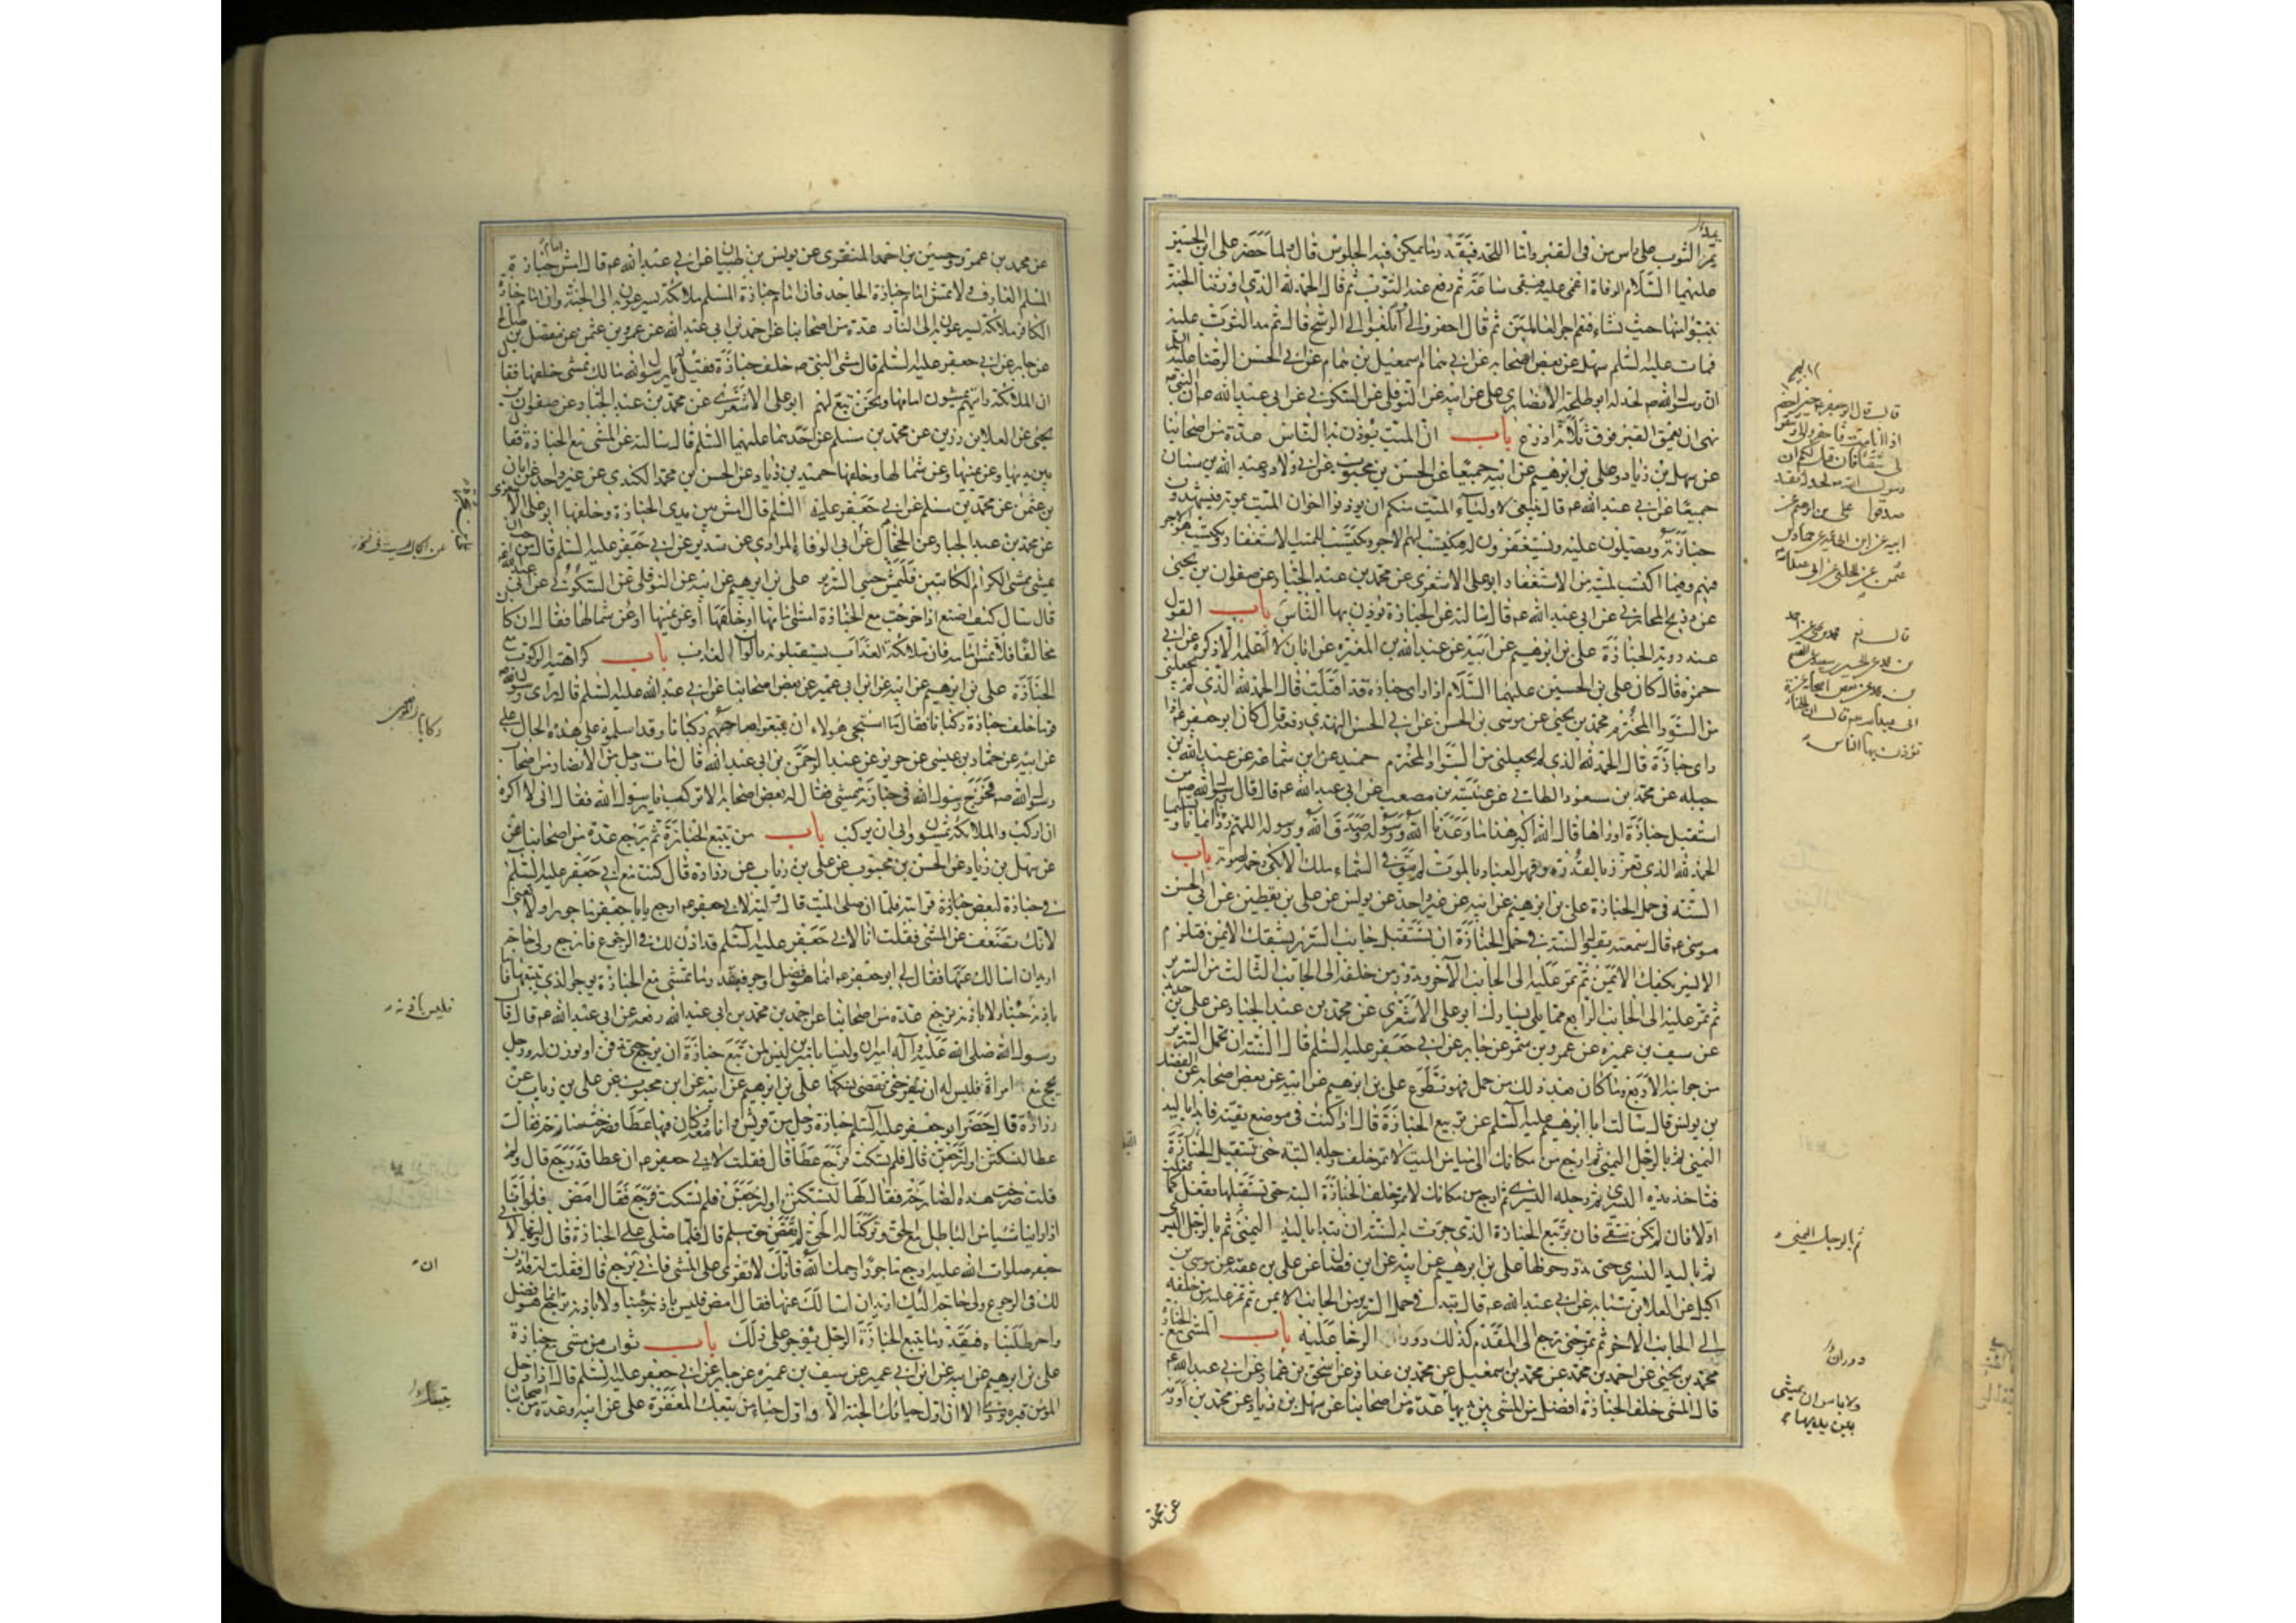 يمد الثوب على راس من في القبر واما اللحد فيقدر ما يمكن فيه الجلوس قال ولما حضر على بن الحسين
عليهما السلام الوفاة اغمى عليه فبقى ساعة ثم رفع عنه الثوب ثم قال الحمد لله الذي اورثنا الجنة
نتبوأ منها حيث نشاء فنعم اجر العاملين ثم قال احفروا لي وابلغوا الى الرشح قال ثم مد الثوب عليه
فمات عليه السلم سهل عن بعض اصحابه عن ابي همام اسمعيل بن همام عن ابي الحسن الرضا عليه السلم
ان رسول الله ص لحد له ابو طلحة الانصاري على عن ابيه عن النوفلى عن السكوني عن ابي عبد الله ع ان النبي ص
نهى ان يعمق القبر فوق ثلاثة اذرع باب ان الميت يوذن به الناس عدة من اصحابنا
عن سهل بن زياد وعلى بن ابرهيم عن ابيه جميعا عن الحسن بن محبوب عن ابي ولاد وعبد الله بن سنان
جميعا عن ابي عبد الله ع قال ينبغى لاولياء الميت منكم ان يوذنوا اخوان الميت بموته فيشهدون
جنازته ويصلون عليه ويستغفرون له فيكتب لهم الاجر ويكتب للميت الاستغفار ويكتسب هو الاجر
فيهم وفيما اكتسب لميته من الاستغفار ابو على الاشعرى عن محمد بن عبد الجبار عن صفوان بن يحيى
عن ذريح المحاربي عن ابي عبد الله ع قال سالته عن الجنازة يوذن بها الناس باب القول
عند روية الجنازة على بن ابرهيم عن ابيه عن عبد الله بن المغيرة عن ابان لا اعلمه الا ذكره عن ابي
حمزة قال كان على بن الحسين عليهما السلام اذا راى جنازة قد اقبلت قال الحمد لله الذي لم يجعلنى
من السواد المخترم محمد بن يحيى عن موسى بن الحسن عن ابي الحسن النهدي رفعه قال كان ابو جعفر ع اذا
راى جنازة قال الحمد لله الذي لم يجعلنى من السواد المخترم حميد عن ابن سماعة عن عبد الله بن
جبله عن محمد بن مسعود الطائي عن عنبسة بن مصعب عن ابي عبد الله ع قال قال رسول الله ص من
استقبل جنازة او راها فقال الله اكبر هذا ما وعدنا الله ورسوله وصدق الله ورسوله اللهم زدنا ايمانا وتسليما
الحمد لله الذي تعزز بالقدرة وقهر العباد بالموت لم يبق في السماء ملك الا بكى رحمة لصوته باب
السنة في حمل الجنازة على بن ابرهيم عن ابيه عن غير واحد عن يونس عن على بن يقطين عن ابي الحسن
موسى ع قال سمعته يقول السنة في حمل الجنازة ان تستقبل جانب السرير بشقك الايمن فتلزم
الايسر بكفك الايمن ثم تمر عليه الى الجانب الآخر وتدور من خلفه الى الجانب الثالث من السرير
ثم تمر عليه الى الجانب الرابع مما يلى يسارك ابو على الاشعرى عن محمد بن عبد الجبار عن على بن حديد
عن سيف بن عميرة عن عمرو بن شمر عن جابر عن ابي جعفر عليه السلم قال السنة ان يحمل السرير
من جوانبه الاربع وما كان بعد ذلك من حمل فهو تطوع على بن ابرهيم عن ابيه عن بعض اصحابه عن الفضل
بن يونس قال سالت ابا ابرهيم عليه السلم عن تربيع الجنازة قال اذا كنت في موضع تقية فابدا باليد
اليمنى ثم بالرجل اليمنى ثم ارجع من مكانك الى ميامن الميت لا تمر خلف رجله البتة حتى تستقبل الجنازة
فتاخذ يده اليسرى ثم رجله اليسرى ثم ارجع من مكانك لا تمر خلف الجنازة البتة حتى تستقبلها تفعل كما فعلت
اولا فان لم تكن تتقى فان تربيع الجنازة الذي جرت به السنة ان تبدا باليد اليمنى ثم بالرجل اليسرى
ثم باليد اليسرى حتى تدور حولها على بن ابرهيم عن ابيه عن ابن فضال عن على بن عقبة عن موسى بن
اكيل عن العلا بن سيابه عن ابي عبد الله ع قال تبدا في حمل السرير من الجانب الايمن ثم تمر عليه من خلفه
الى الجانب الاخر ثم تمر حتى ترجع الى المقدم كذلك دوران الرحا عليه باب المشى مع الجنازة
محمد بن يحيى عن احمد بن محمد عن محمد بن اسمعيل عن محمد بن عذافر عن اسحق بن عمار عن ابي عبد الله ع
قال المشى خلف الجنازة افضل من المشى بين يديها عدة من اصحابنا عن سهل بن زياد عن محمد بن اورمه
قال قال ابو جعفر ع حين احضر
اذا انا مت فاحفروا لي وشقوا
لى شقا فان قيل لكم ان
رسول الله ص لحد له فقد
صدقوا على بن ابرهيم عن
ابيه عن ابن ابي عمير عن حماد بن
عثمن عن الحلبي عن ابي عبد الله
قال نعم محمد بن يحيى عن احمد
بن محمد عن الحسين بن سعيد عن القسم
بن محمد عن بعض اصحابه عن
ابي عبد الله ع قال ان الجنازة
توذن بها الناس
ثم بالرجل اليمنى
دوران
ولا باس ان يمشى
بين يديها
عن محمد
عن محمد بن عمرو وحسين بن احمد المنقرى عن يونس بن ظبيان عن ابي عبد الله ع قال امش امام جنازة
المسلم العارف ولا تمش امام جنازة الجاحد فان امام جنازة المسلم ملائكة يسرعون به الى الجنة وان امام جنازة
الكافر ملائكة يسرعون به الى النار عدة من اصحابنا عن احمد بن ابي عبد الله عن عمرو بن عثمن عن مفضل بن صالح
عن جابر عن ابي جعفر عليه السلم قال مشى النبي ص خلف جنازة فقيل يا رسول الله مالك تمشى خلفها فقال
ان الملائكة رايتهم يمشون امامها ونحن تبع لهم ابو على الاشعرى عن محمد بن عبد الجبار عن صفوان بن
يحيى عن العلا بن رزين عن محمد بن مسلم عن احدهما عليهما السلم قال سالته عن المشى مع الجنازة فقال
بين يديها وعن يمينها وعن شمالها وخلفها حميد بن زياد عن الحسن بن محمد الكندي عن غير واحد عن ابان
بن عثمن عن محمد بن مسلم عن ابي جعفر عليه السلم قال امش بين يدي الجنازة وخلفها ابو على الاشعرى
عن محمد بن عبد الجبار عن الحجال عن ابي الوفاء المرادى عن سدير عن ابي جعفر عليه السلم قال من احب ان
يمشى ممشى الكرام الكاتبين فليمش جنبى السرير على بن ابرهيم عن ابيه عن النوفلى عن السكوني عن ابي عبد الله
قال سال كيف اصنع اذا خرجت مع الجنازة امشى امامها او خلفها او عن يمينها او عن شمالها فقال ان كان
مخالفا فلا تمش امامه فان ملائكة العذاب يستقبلونه بالوان العذاب باب كراهية الركوب مع
الجنازة على بن ابرهيم عن ابيه عن ابن ابي عمير عن بعض اصحابنا عن ابي عبد الله عليه السلم قال راى رسول الله ص
قوما خلف جنازة ركبانا فقال ما استحيى هولاء ان يتبعوا صاحبهم ركبانا وقد اسلموه على هذه الحال على
عن ابيه عن حماد بن عيسى عن حريز عن عبد الرحمن بن ابي عبد الله قال مات رجل من الانصار من اصحاب
رسول الله ص فخرج رسول الله في جنازته يمشى فقال له بعض اصحابه الا تركب يا رسول الله فقال انى لاكره
ان اركب والملائكة يمشون وابى ان يركب باب من يتبع الجنازة ثم يرجع عدة من اصحابنا عن
عن سهل بن زياد عن الحسن بن محبوب عن على بن رئاب عن زرارة قال كنت مع ابي جعفر عليه السلم
في جنازة لبعض قرابته فلما ان صلى الميت قال وليه لابي جعفر ع ارجع يا ابا جعفر ماجورا ولا تعنى
لانك تضعف عن المشى فقلت انا لابي جعفر عليه السلم قد اذن لك في الرجوع فارجع ولي حاجة
اريد ان اسالك عنها فقال لي ابو جعفر ع انما هو فضل واجر فبقدر ما تمشى مع الجنازة يوجر الذي يتبعها فاما
باذنه جئنا ولا باذنه نرجع عدة من اصحابنا عن احمد بن محمد بن ابي عبد الله رفعه عن ابي عبد الله ع قال قال
رسول الله صلى الله عليه وآله اميران وليسا باميرين ليس لمن تبع جنازة ان يرجع حتى يدفن او يوذن له ورجل
يحج مع امراة فليس له ان ينفر حتى تقضى نسكها على بن ابرهيم عن ابيه عن ابن محبوب عن على بن رئاب عن
زرارة قال حضر ابو جعفر عليه السلم جنازة رجل من قريش وانا معه وكان فيها عطا فصرخت صارخة فقال
عطا لتسكتن او لنرجعن قال فلم تسكت فرجع عطا قال فقلت لابي جعفر ع ان عطا قد رجع قال ولم
قلت صرخت هذه الصارخة فقال لها لتسكتن او لنرجعن فلم تسكت فرجع فقال امض فلو انا
اذا راينا شيئا من الباطل مع الحق وتركنا له الحق لم نقض حق مسلم قال فلما صلى على الجنازة قال وليها لابي
جعفر صلوات الله عليه ارجع ماجورا رحمك الله فانك لا تقوى على المشى فابى ان يرجع قال فقلت له قد اذن
لك في الرجوع ولي حاجة اريد ان اسالك عنها فقال امض فليس باذنه جئنا ولا باذنه نرجع انما هو فضل
واجر طلبناه فبقدر ما يتبع الجنازة الرجل يوجر على ذلك باب ثواب من مشى مع جنازة
على بن ابرهيم عن ابيه عن ابن ابي عمير عن سيف بن عميرة عن جابر عن ابي جعفر عليه السلم قال اذا دخل
المومن قبره نودى الا ان اول حبائك الجنة الا واول حباء من يتبعك المغفرة على عن ابيه وعدة من اصحابنا
فليس باذنه
ان